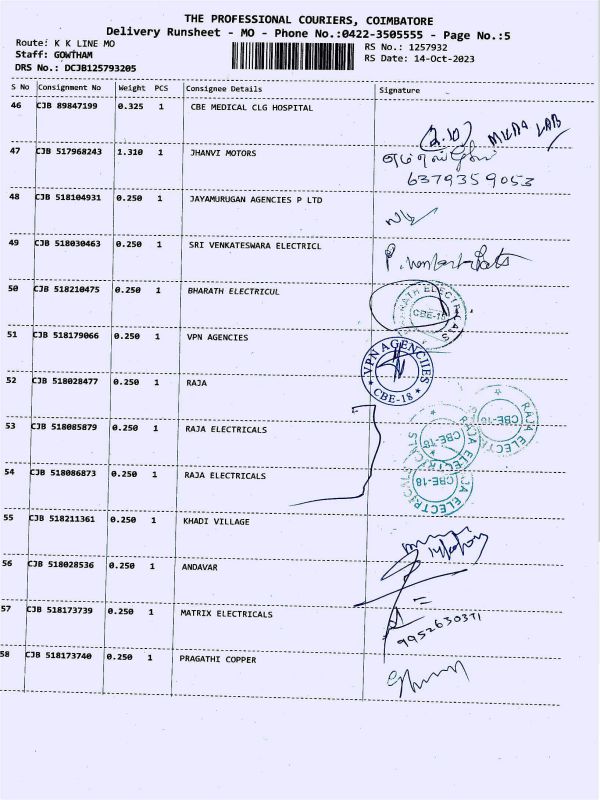 THE PROFESSIONAL COURIERS, COIMBATORE
Delivery Runsheet - MO - Phone No.:0422-3505555 - Page No.:5
Route: K K LINE MO
RS No.: 1257932
Staff: GOWTHAM
RS Date: 14-Oct-2023
DRS No.: DCJB125793205
S No Consignment No Weight PCS Consignee Details Signature
46 CJB 89847199 0.325 1 CBE MEDICAL CLG HOSPITAL
(2.10) LAB
47 CJB 517968243 1.310 1 JHANVI MOTORS
6379359053
48 CJB 518104931 0.250 1 JAYAMURUGAN AGENCIES P LTD
49 CJB 518030463 0.250 1 SRI VENKATESWARA ELECTRICL
50 CJB 518210475 0.250 1 BHARATH ELECTRICUL
CBE-18
51 CJB 518179066 0.250 1 VPN AGENCIES
VPN AGENCIIES
CBE-18
52 CJB 518028477 0.250 1 RAJA
RAJA ELECTRICALS
CBE-18
53 CJB 518085879 0.250 1 RAJA ELECTRICALS
RAJA ELECTRICALS
CBE-18
54 CJB 518086873 0.250 1 RAJA ELECTRICALS
RAJA ELECTRICALS
CBE-18
55 CJB 518211361 0.250 1 KHADI VILLAGE
56 CJB 518028536 0.250 1 ANDAVAR
57 CJB 518173739 0.250 1 MATRIX ELECTRICALS
58 CJB 518173740 0.250 1 PRAGATHI COPPER